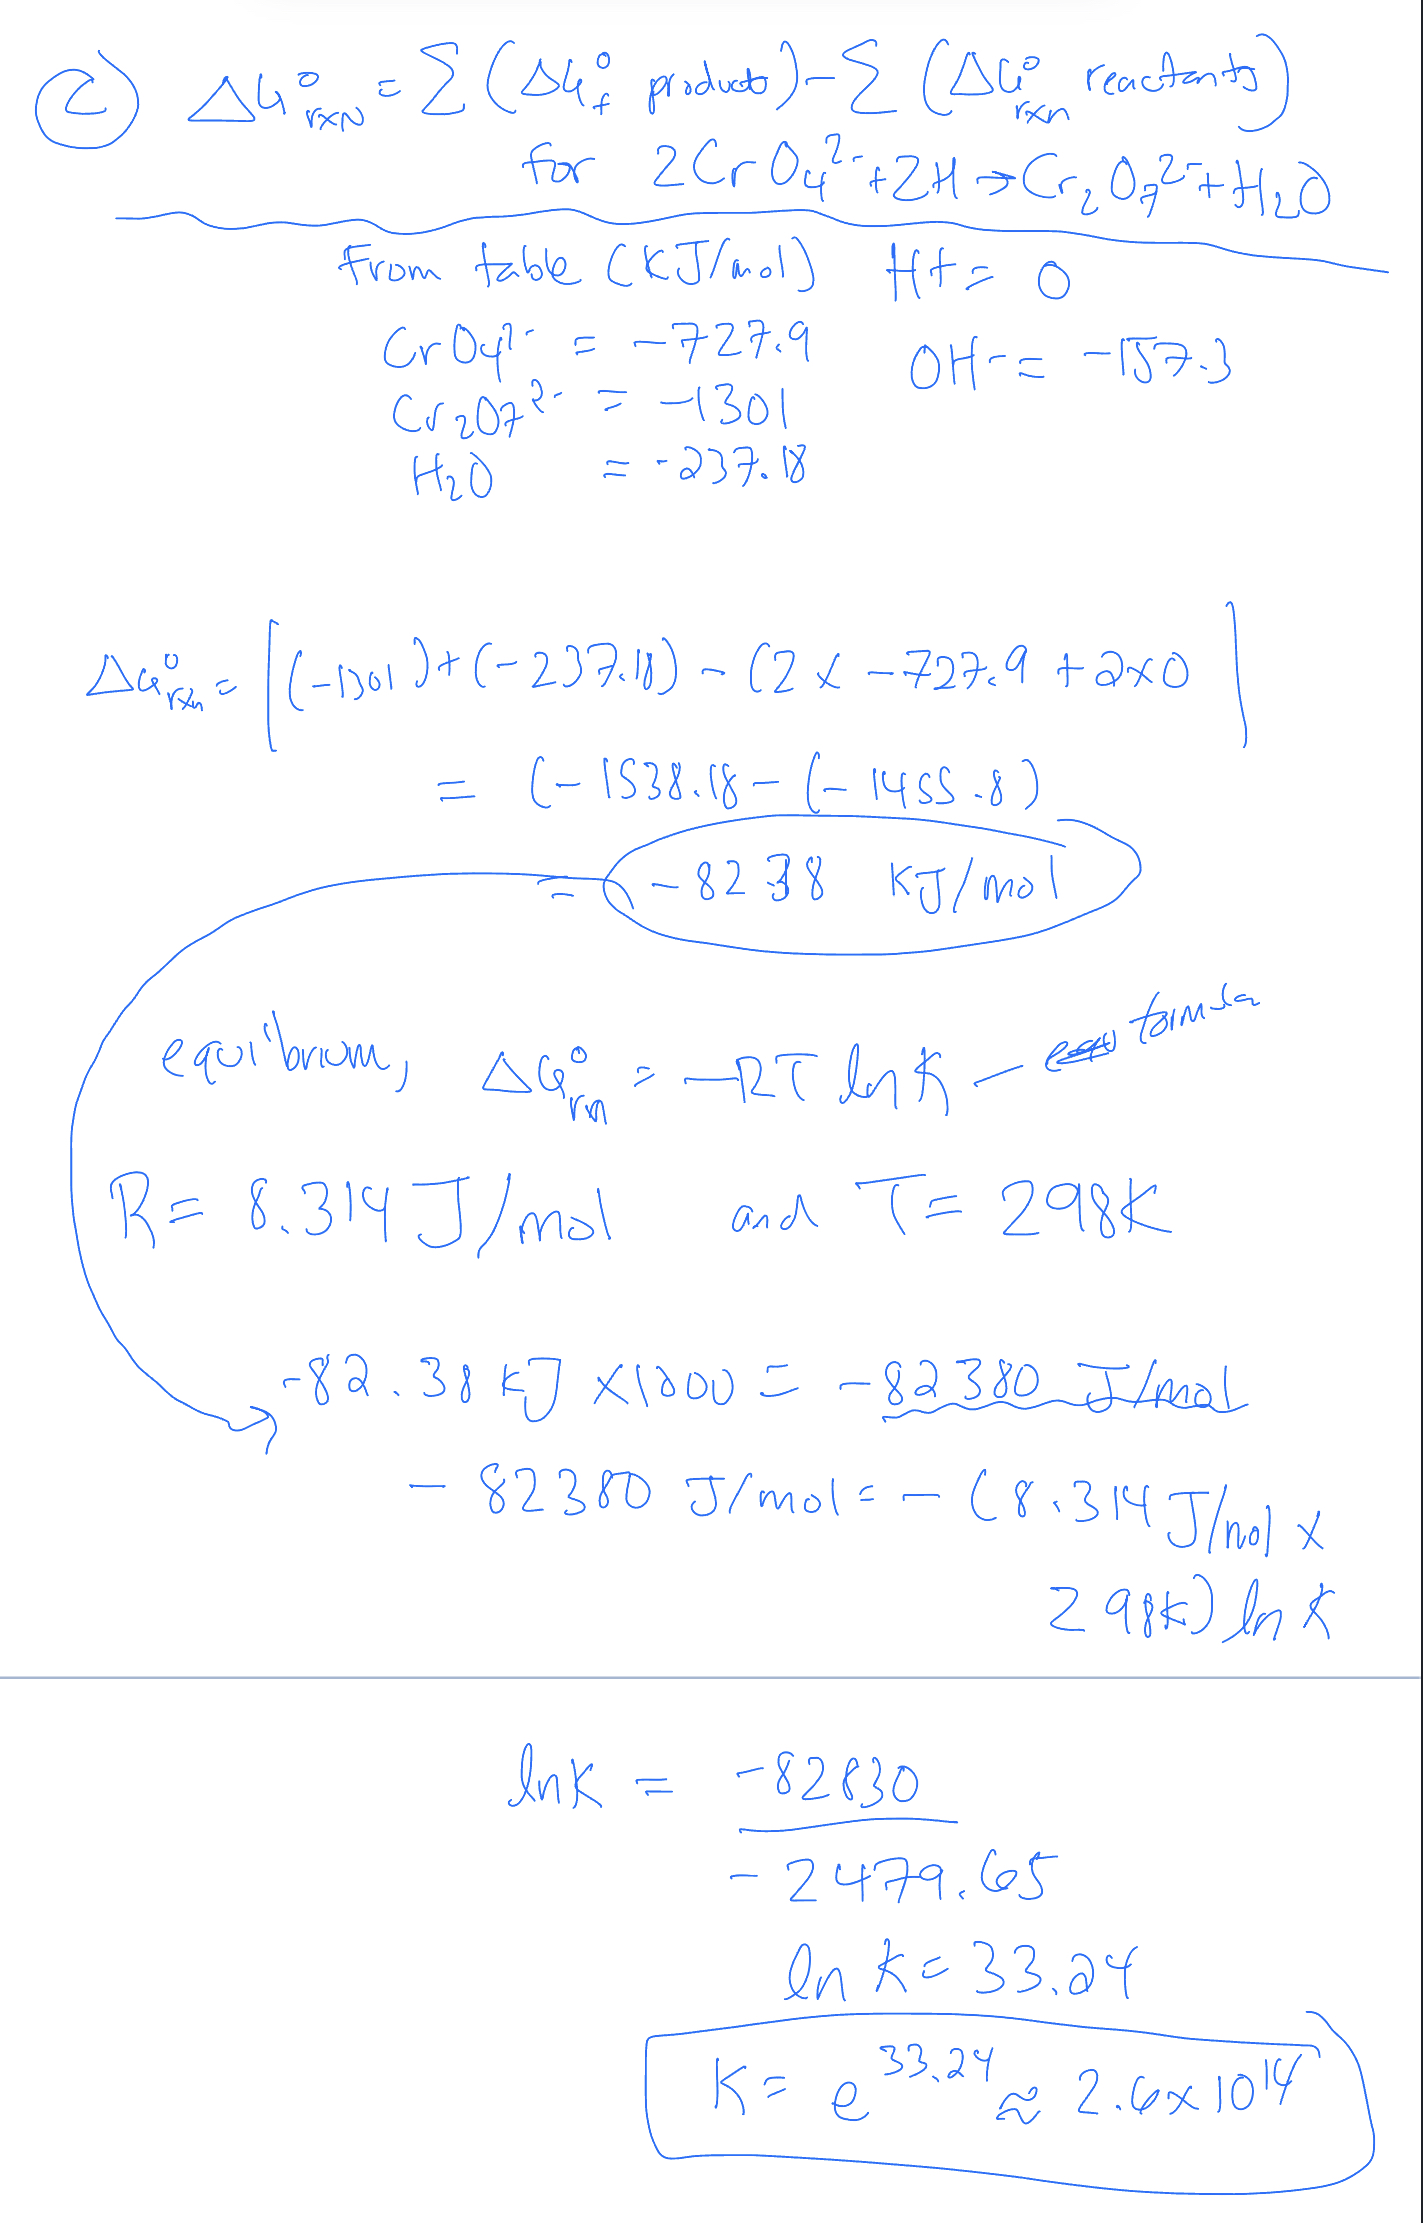 c) ΔG°rxn = Σ(ΔG°f products) - Σ(ΔG°rxn reactants)
for 2CrO4²⁻ + 2H → Cr2O7²⁻ + H2O
From table (KJ/mol) H+ = 0
CrO4²⁻ = -727.9 OH- = -157.3
Cr2O7²⁻ = -1301
H2O = -237.18
ΔG°rxn = [(-1301) + (-237.18) - (2 x -727.9 + 2x0]
= (-1538.18 - (-1455.8)
= -82.38 KJ/mol
equilibrium, ΔG°rxn = -RT ln K - formula
R = 8.314 J/mol and T = 298K
-82.38 KJ x1000 = -82380 J/mol
-82380 J/mol = - (8.314 J/mol x
298K) ln K
ln K = -82830
-2479.65
ln K = 33.24
K = e^33.24 ≈ 2.6x10^14